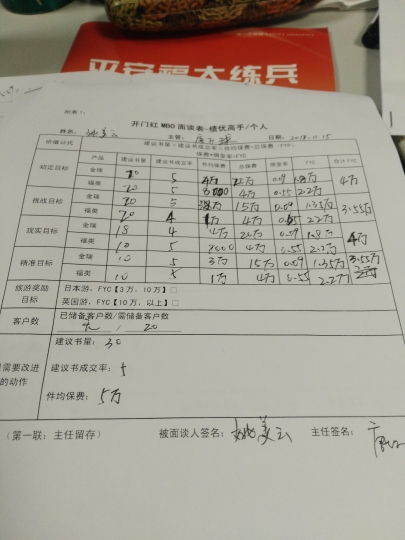 平安福大练兵
附表7:
开门红 MBO 面谈表-绩优高手/个人
姓名: 主管: 日期: 2018.11.15
价值公式 建议书量×建议书成交率×件均保费=总保费(FYP)
保费*佣金率=FYC
产品 建议书量 建议书成交率 件均保费 总保费 佣金率 FYC 合计FYC
锁定目标 金瑞 20 5 4万 20万 0.09 1.8万 4万
福类 20 5 8000 4万 0.55 2.2万
挑战目标 金瑞 20 5 3万 15万 0.09 1.35万 3.55万
福类 20 4 1万 4万 0.55 2.2万
现实目标 金瑞 18 4 4万 20万 0.09 1.8万 4万
福类 10 5 8000 4万 0.55 2.2万
精准目标 金瑞 10 5 3万 15万 0.09 1.35万 3.55万
福类 10 1万 4万 0.55 2.2万
旅游奖励目标 日本游,FYC【3万,10万】□
英国游,FYC【10万,以上】□
客户数 已储备客户数/需储备客户数
/ 20
需要改进的动作 建议书量: 30
建议书成交率:
件均保费: 5万
(第一联:主任留存) 被面谈人签名: 姚美云 主任签名: